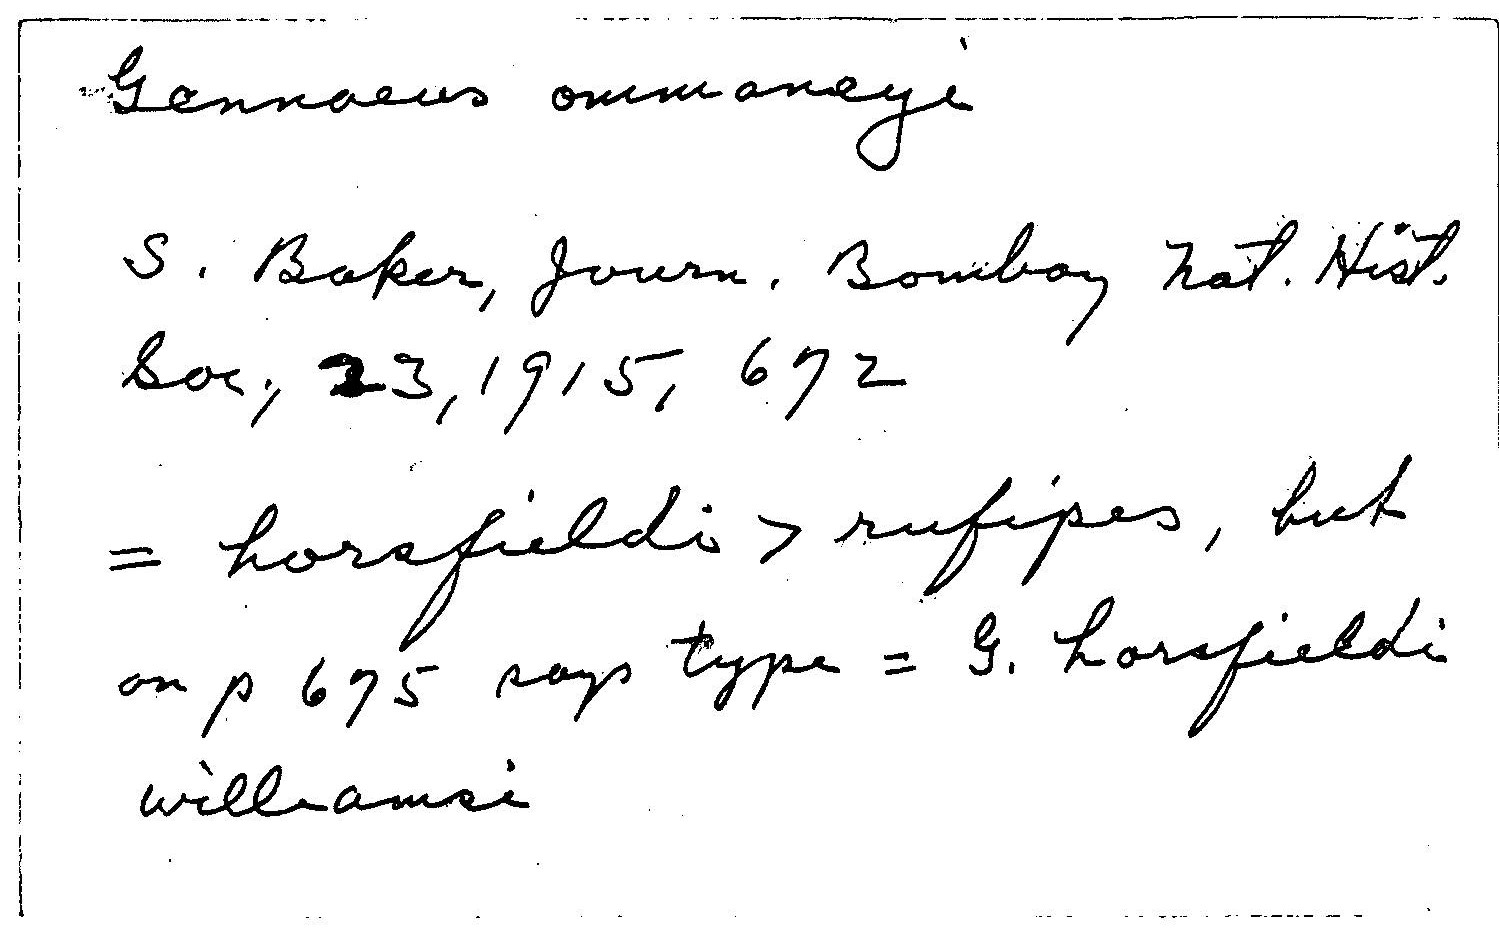 Gennaeus ommaneyi
S. Baker, Journ. Bombay Nat. Hist.
Soc., 23, 1915, 672
= horsfieldi > rufipes, but
on p 675 says type = G. horsfieldi
williamsi